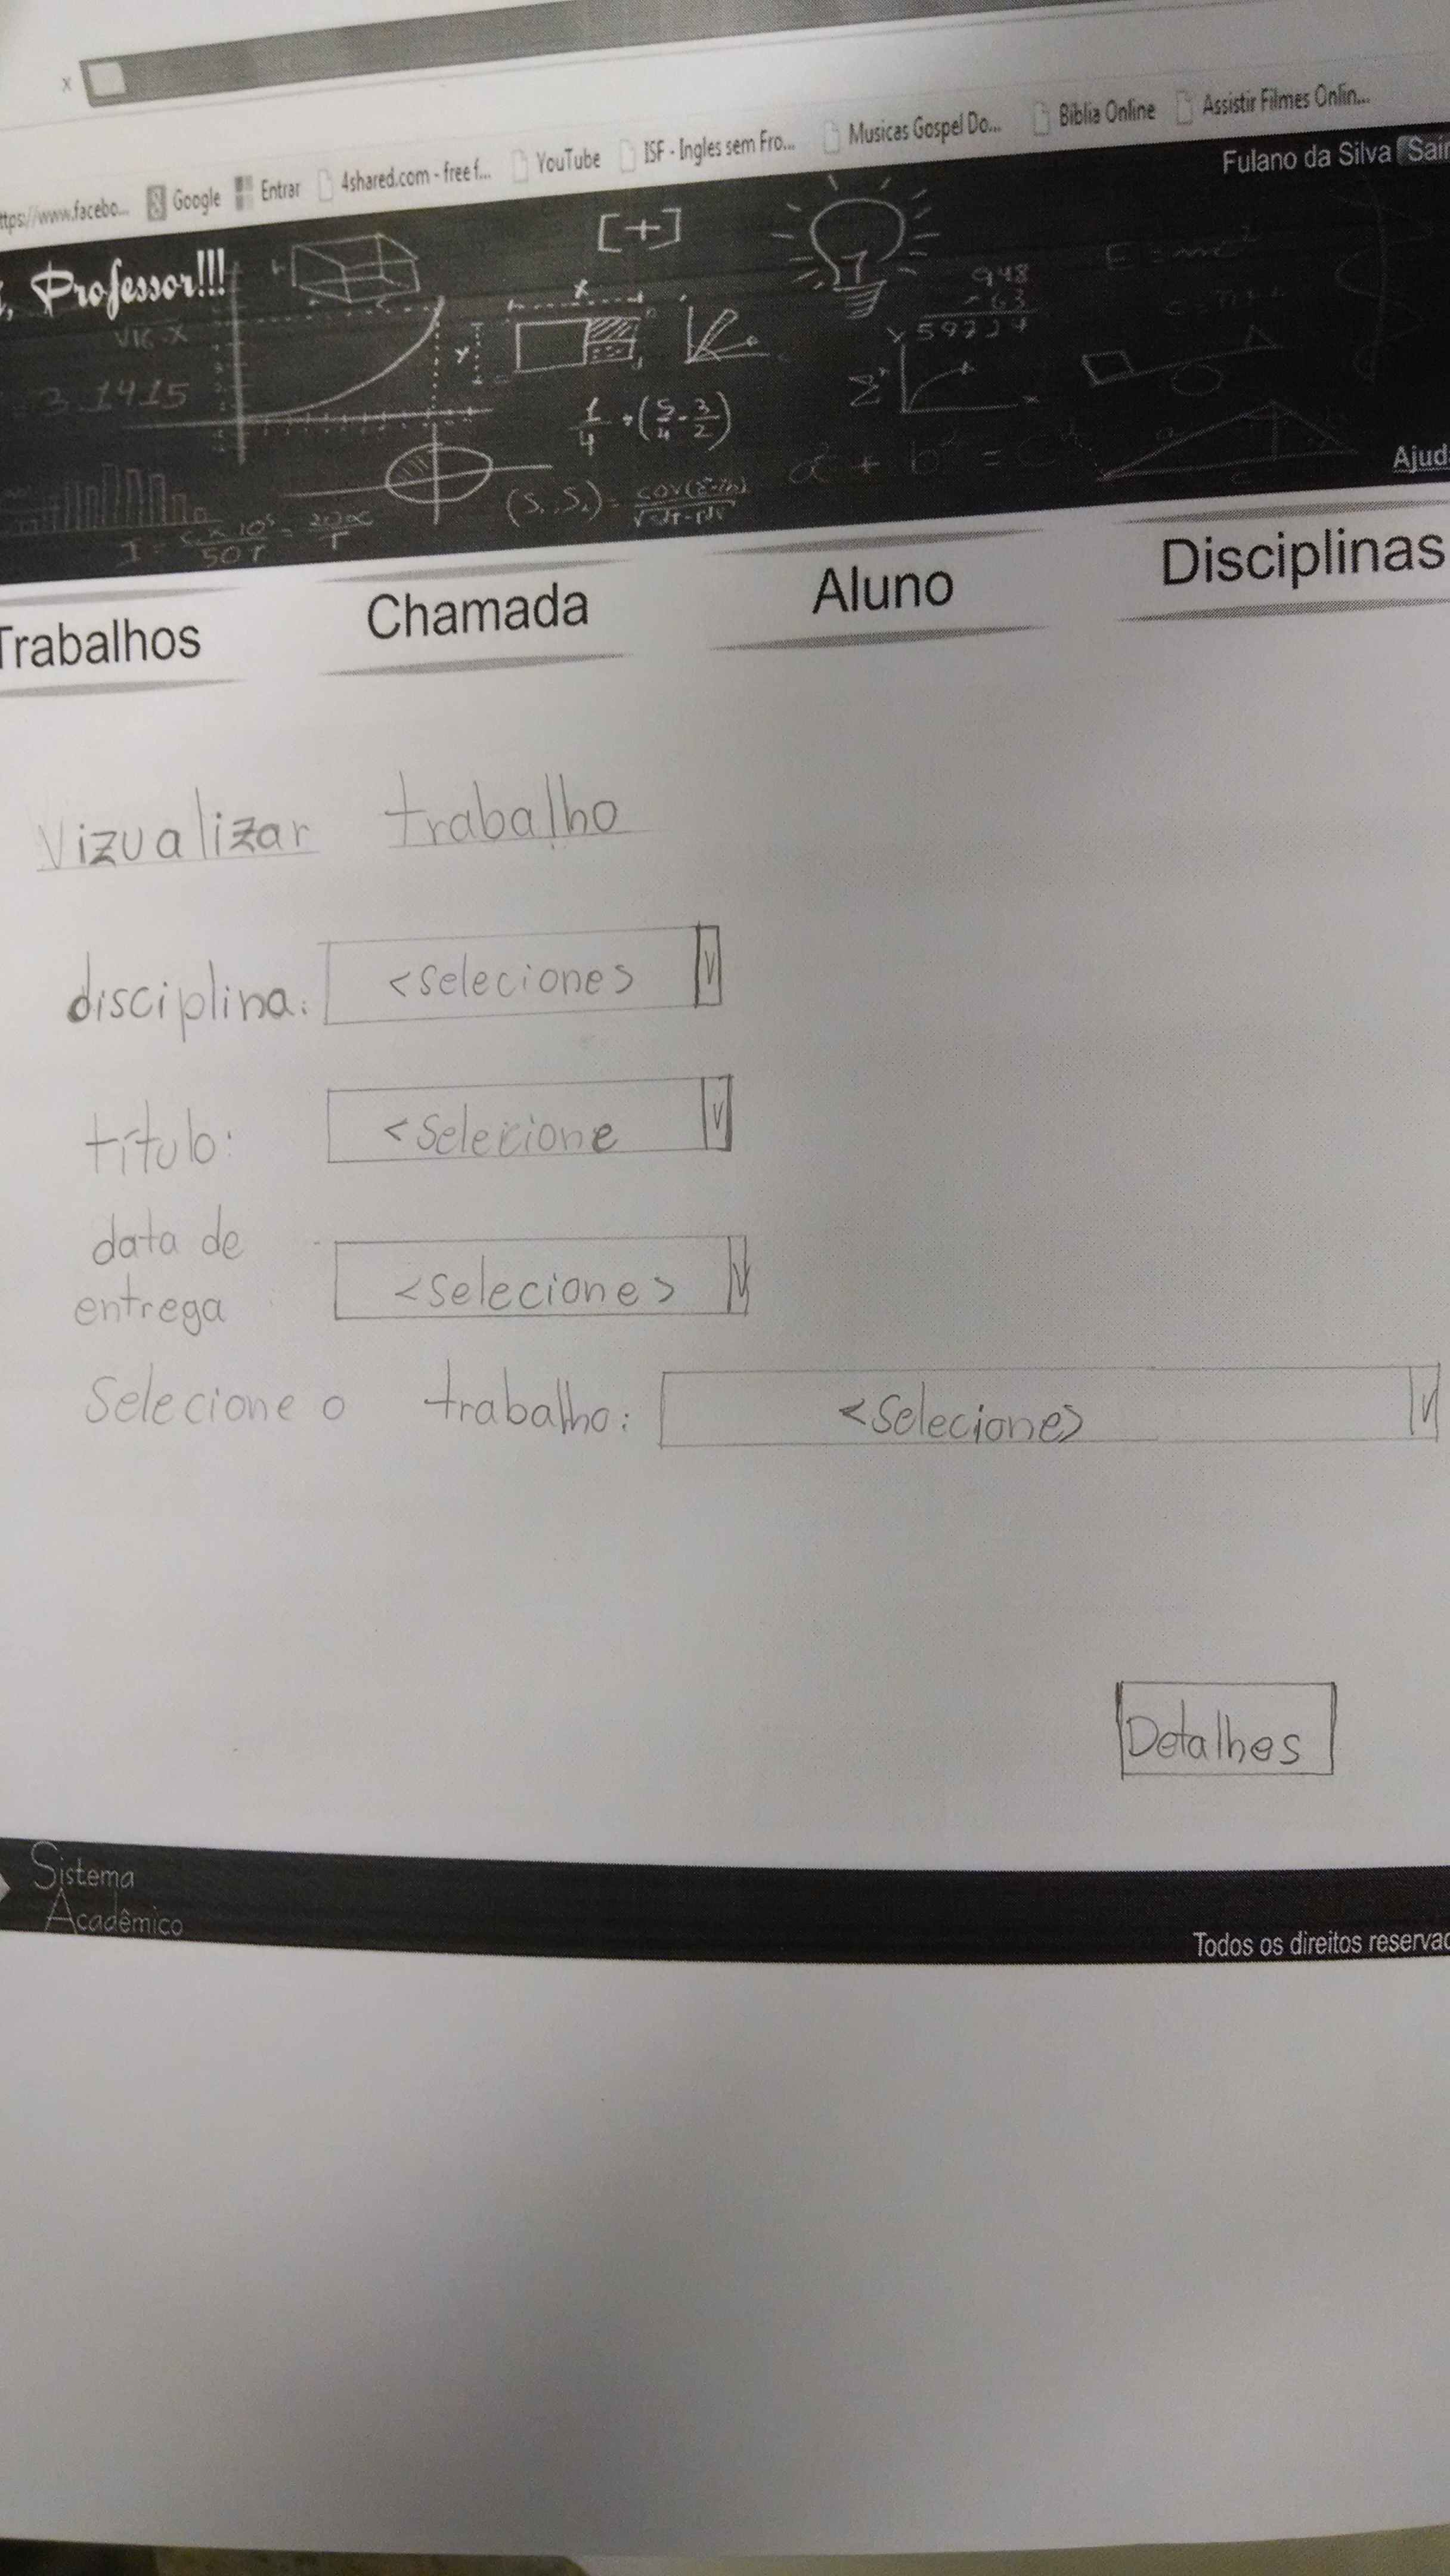 x
ttps://www.facebo... Google Entrar 4shared.com - free f... YouTube ISF - Ingles sem Fro... Musicas Gospel Do... Bíblia Online Assistir Filmes Onlin...
Fulano da Silva Sair
, Professor!!!
[+]
948
63
59724
E=mc²
√16.x
3.1415
x
y
1/4 + (5/4 - 3/2)
Σ
a² + b² = c²
Ajuda
Trabalhos Chamada Aluno Disciplinas
Vizualizar trabalho
disciplina: <seleciones>
título: <Selecione
data de
entrega <selecione>
Selecione o trabalho: <Selecione>
Detalhes
Sistema
Acadêmico
Todos os direitos reservad